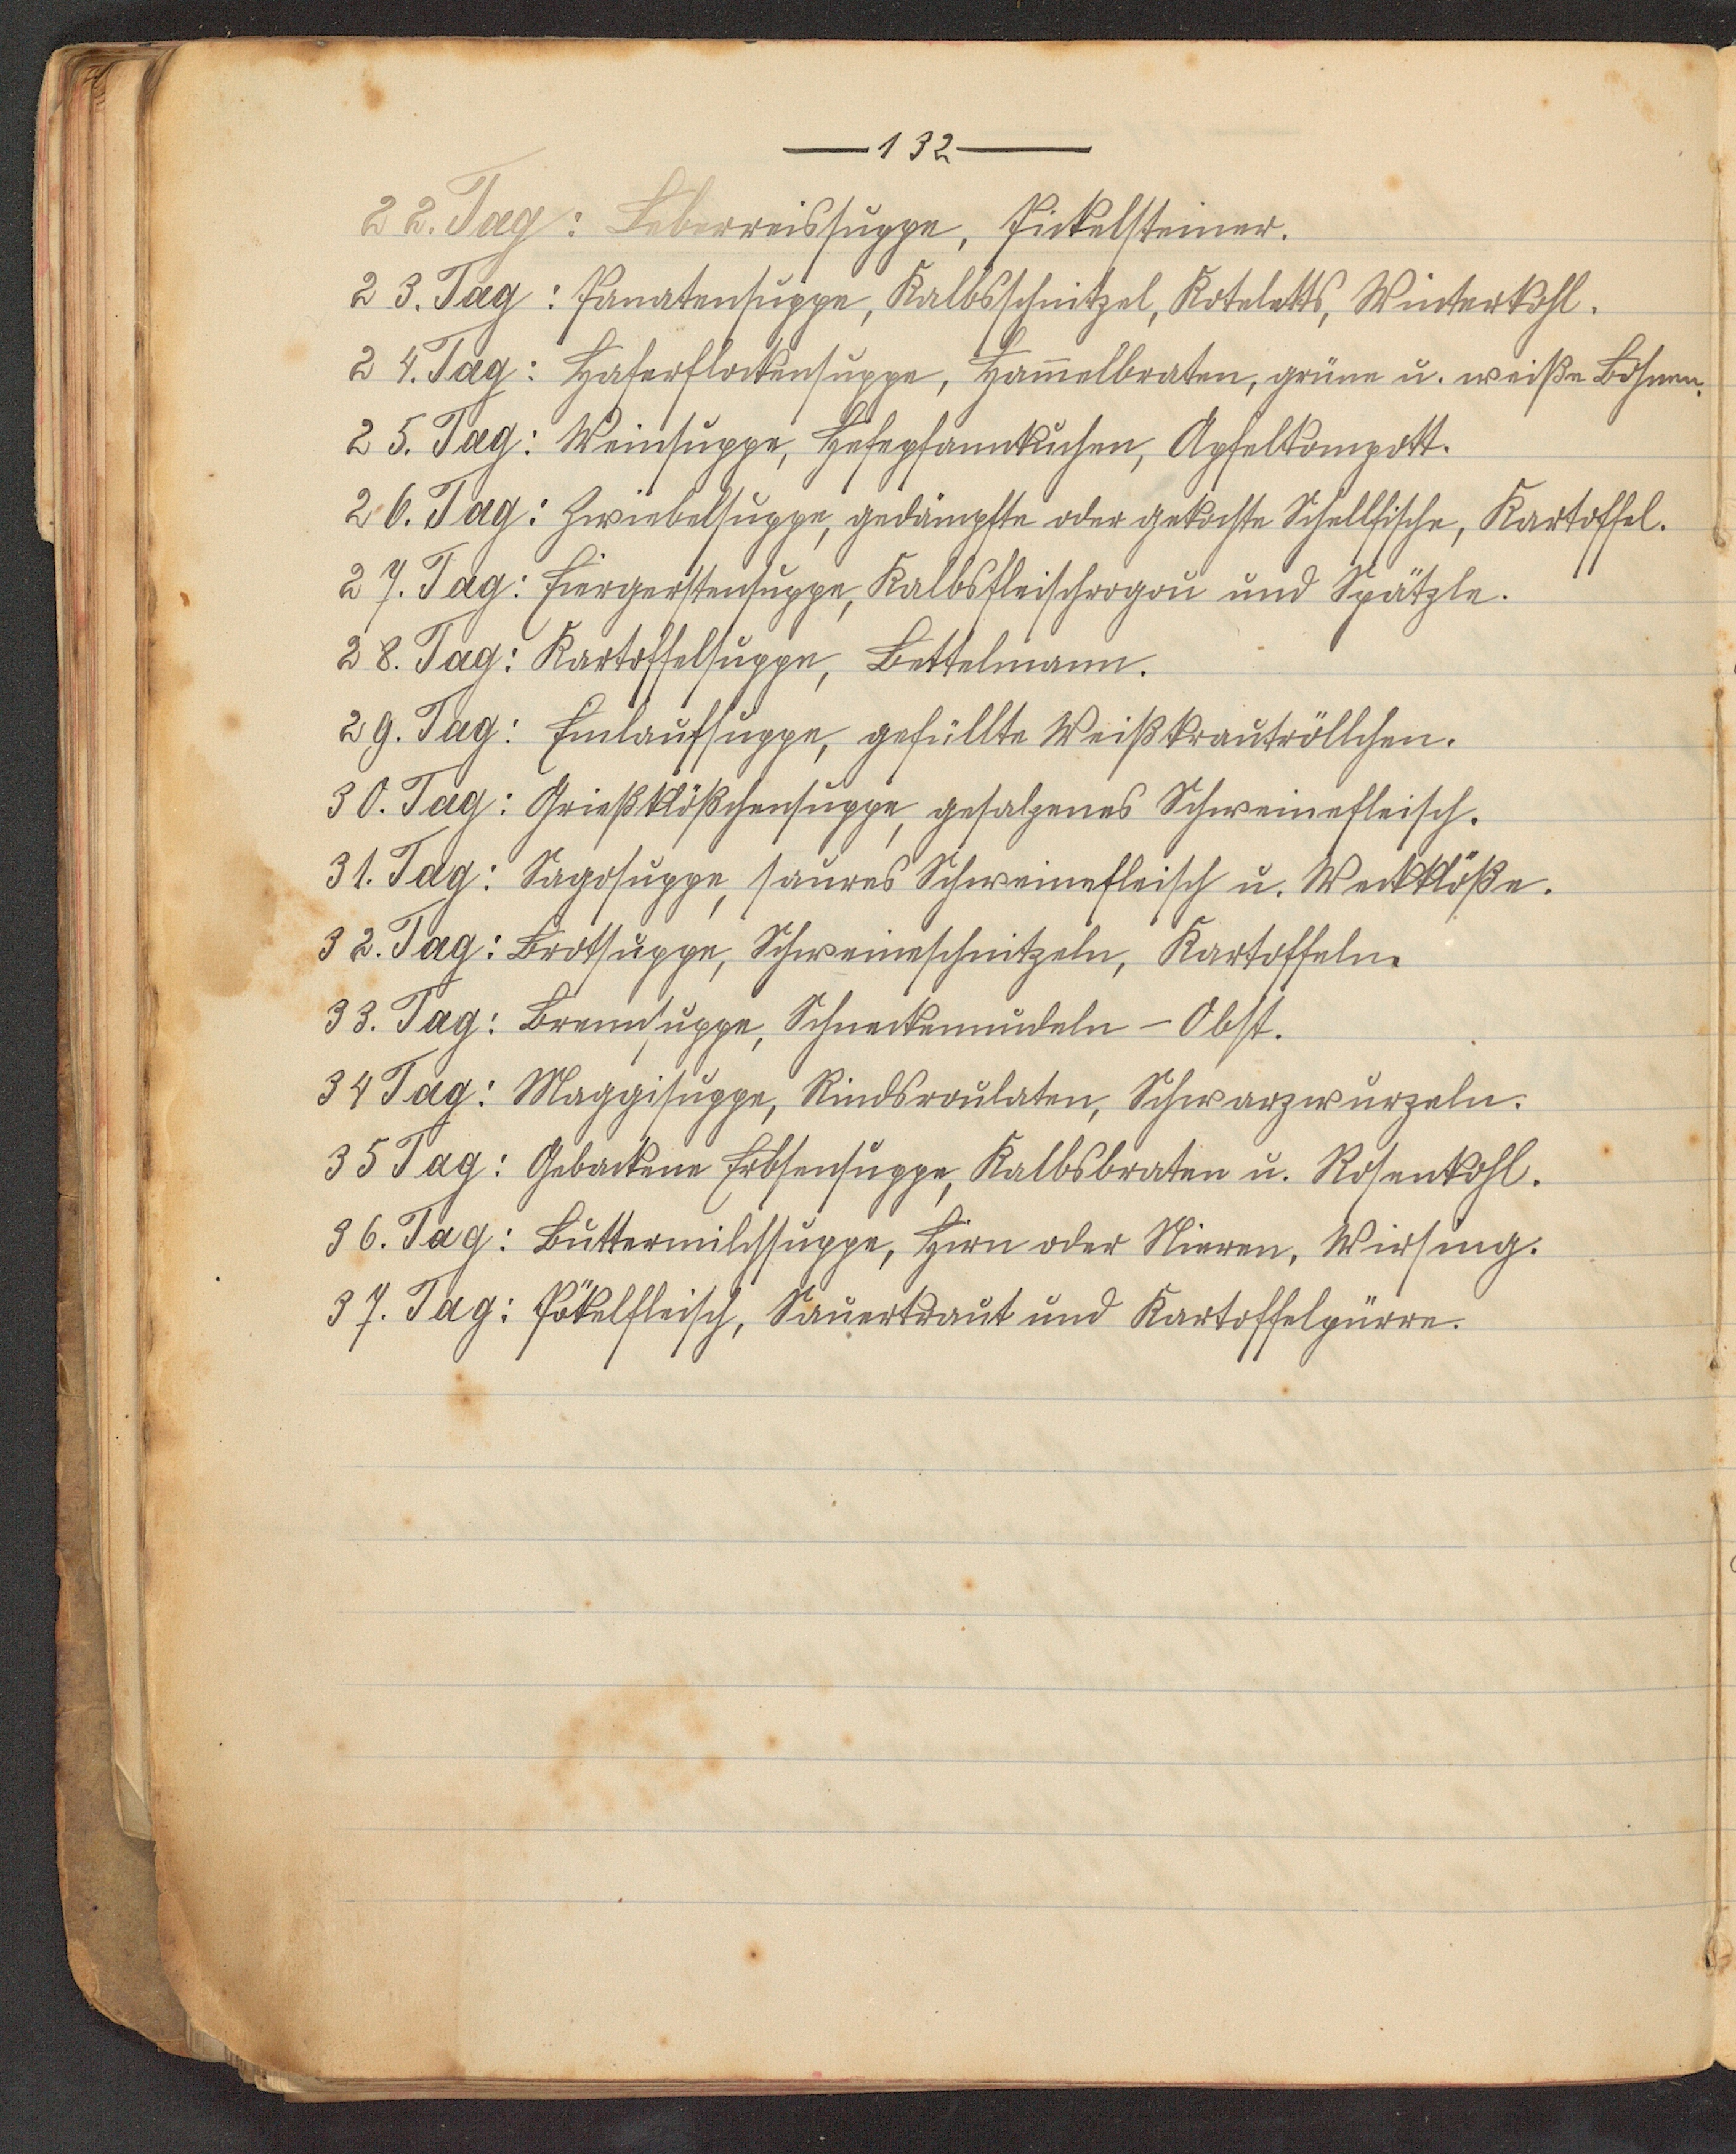 — 132 —
22. Tag: Leberreissuppe, Pickelsteiner.
23. Tag: Panatensuppe, Kalbsschnitzel, Koteletts, Winterkohl.
24. Tag: Haferflockensuppe, Ham̅elbraten, grüne u. weiße Bohnen.
25. Tag: Weinsuppe, Hefepfannkuchen, Apfelkompott.
26. Tag: Zwiebelsuppe, gedämpfte oder gekochte Schellfische, Kartoffel.
27. Tag: Eiergerstensuppe, Kalbsfleischrogou und Spätzle.
28. Tag: Kartoffelsuppe, Bettelmann.
29. Tag: Einlaufsuppe, gefüllte Weißkrautröllchen.
30. Tag: Grießklößchensuppe, gesalzenes Schweinefleisch.
31. Tag: Sagosuppe, saures Schweinefleisch u. Weckklöße.
32. Tag: Brotsuppe, Schweineschnitzeln, Kartoffeln.
33. Tag: Brennsuppe, Schneckennudeln – Obst.
34 Tag: Maggisuppe, Rindsroulaten, Schwarzwurzeln.
35 Tag: Gebackene Erbsensuppe, Kalbsbraten u. Rosenkohl.
36. Tag: Buttermilchsuppe, Hirn oder Nieren, Wirsing.
37. Tag: Pökelfleisch, Sauerkraut und Kartoffelpürre.